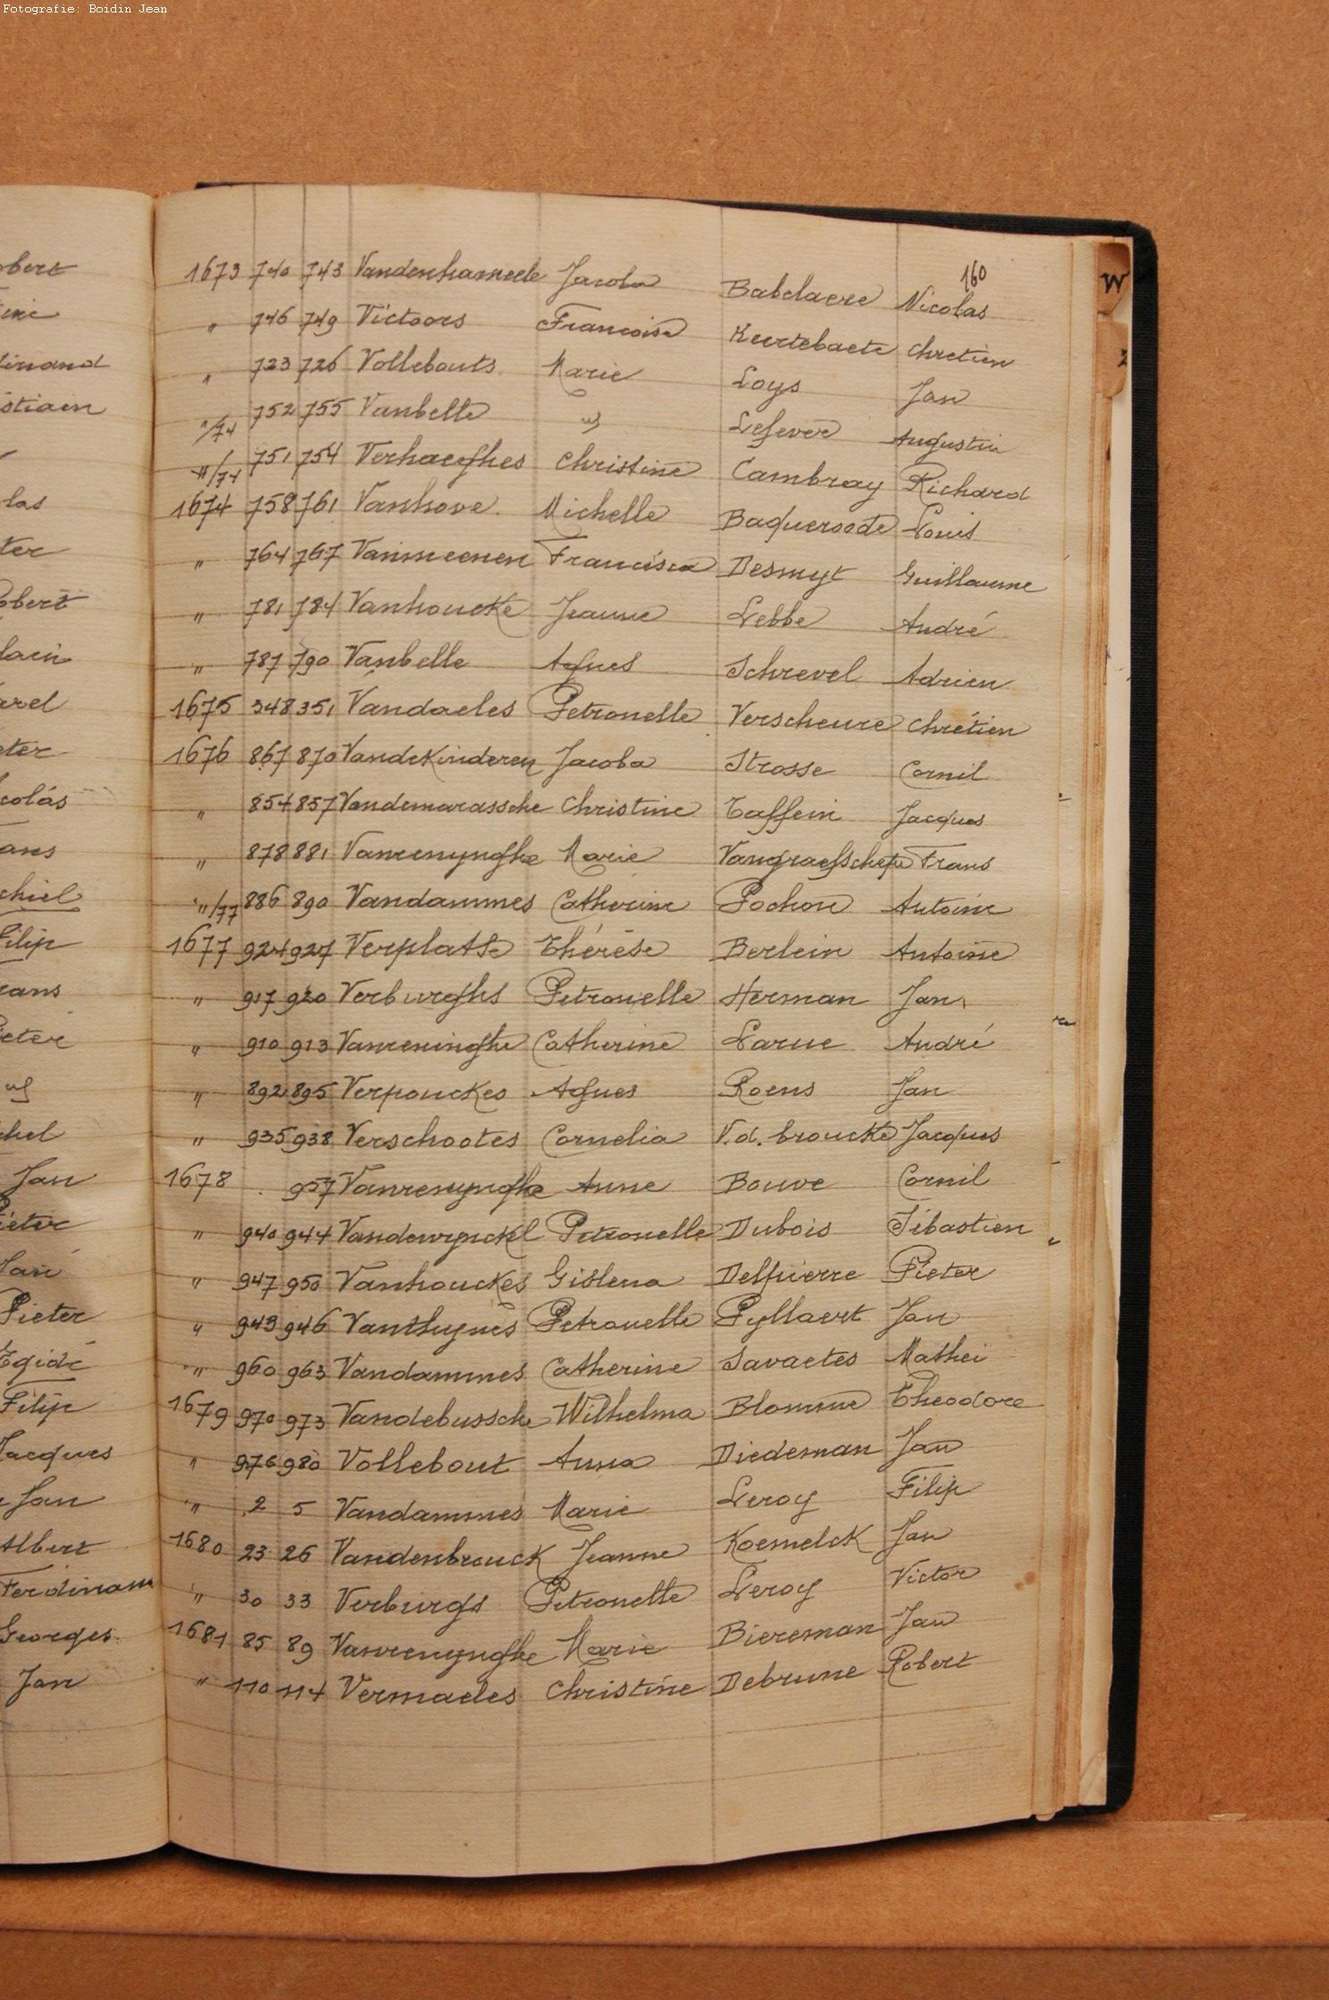 Fotografie: Boidin Jean
160
W
1673 740 743 Vandenhameele Jacoba Babelaere Nicolas
" 746 749 Victoors Francoise Keurtebaete Chretien
" 723 726 Vollebouts Marie Loys Jan
"/74 752 755 Vanbelle " Lefever Augustin
"/74 751 754 Verhaeghes Christine Cambray Richard
1674 758 761 Vanhove Michelle Baqueroode Louis
" 764 767 Vanmeenen Francisca Desmyt Guillaume
" 781 784 Vanhoucke Jeanne Lebbe André
" 787 790 Vanbelle Agnes Schrevel Adrien
1675 348 351 Vandaeles Petronelle Verscheure Chrétien
1676 867 870 Vandekinderen Jacoba Strosse Cornil
" 854 857 Vandemarassche Christine Taffein Jacques
" 878 881 Vanrenynghe Marie Vangraefschepe Frans
"/77 886 890 Vandammes Catherine Pochon Antoine
1677 924 927 Verplatse Thérèse Berlein Antoine
" 917 920 Verburghs Petronelle Herman Jan
" 910 913 Vanreninghe Catherine Larue André
" 892 895 Verpouckes Agnes Roens Jan
" 935 938 Verschootes Cornelia V.d. broucke Jacques
1678 957 Vanrenynghe Anne Bouve Cornil
" 940 944 Vandewynckel Petronelle Dubois Sébastien
" 947 950 Vanhouckes Gislena Delpierre Pieter
" 943 946 Vanthuynes Petronelle Pyllaert Jan
" 960 963 Vandammes Catherine Savaetes Mathei
1679 970 973 Vandebussche Wilhelma Blomme Theodore
" 976 980 Vollebout Anna Diedeman Jan
" 2 5 Vandammes Marie Leroy Filip
1680 23 26 Vandenbrouck Jeanne Koemelck Jan
" 30 33 Verburgs Petronelle Leroy Victor
1681 85 89 Vanrenynghe Marie Biereman Jan
" 110 114 Vermaeles Christine Debrune Robert